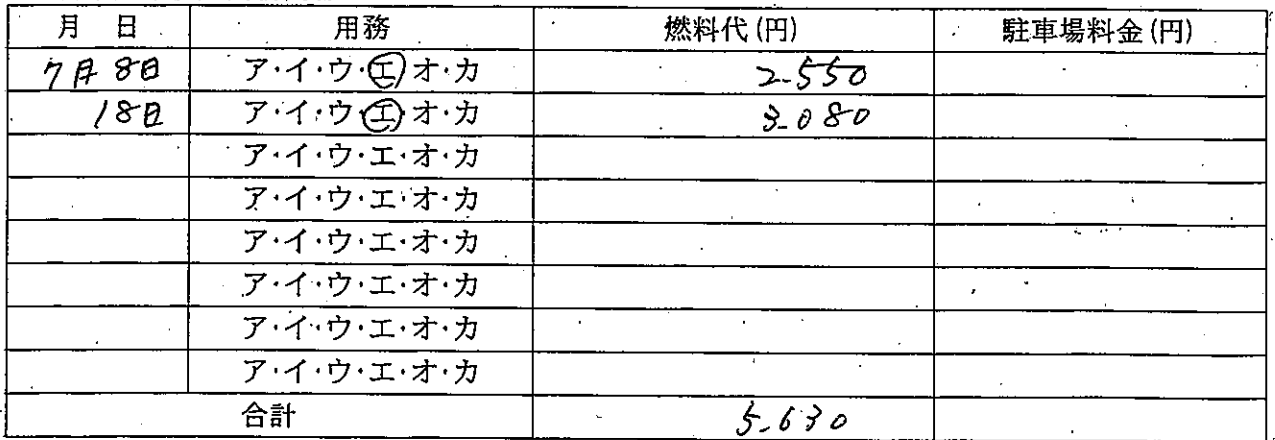 月 日 用務 燃料代(円) 駐車場料金(円)
7月8日 ア・イ・ウ・エ・オ・カ 2-550
18日 ア・イ・ウ・エ・オ・カ 3-080
ア・イ・ウ・エ・オ・カ
ア・イ・ウ・エ・オ・カ
ア・イ・ウ・エ・オ・カ
ア・イ・ウ・エ・オ・カ
ア・イ・ウ・エ・オ・カ
ア・イ・ウ・エ・オ・カ
合計 5-630